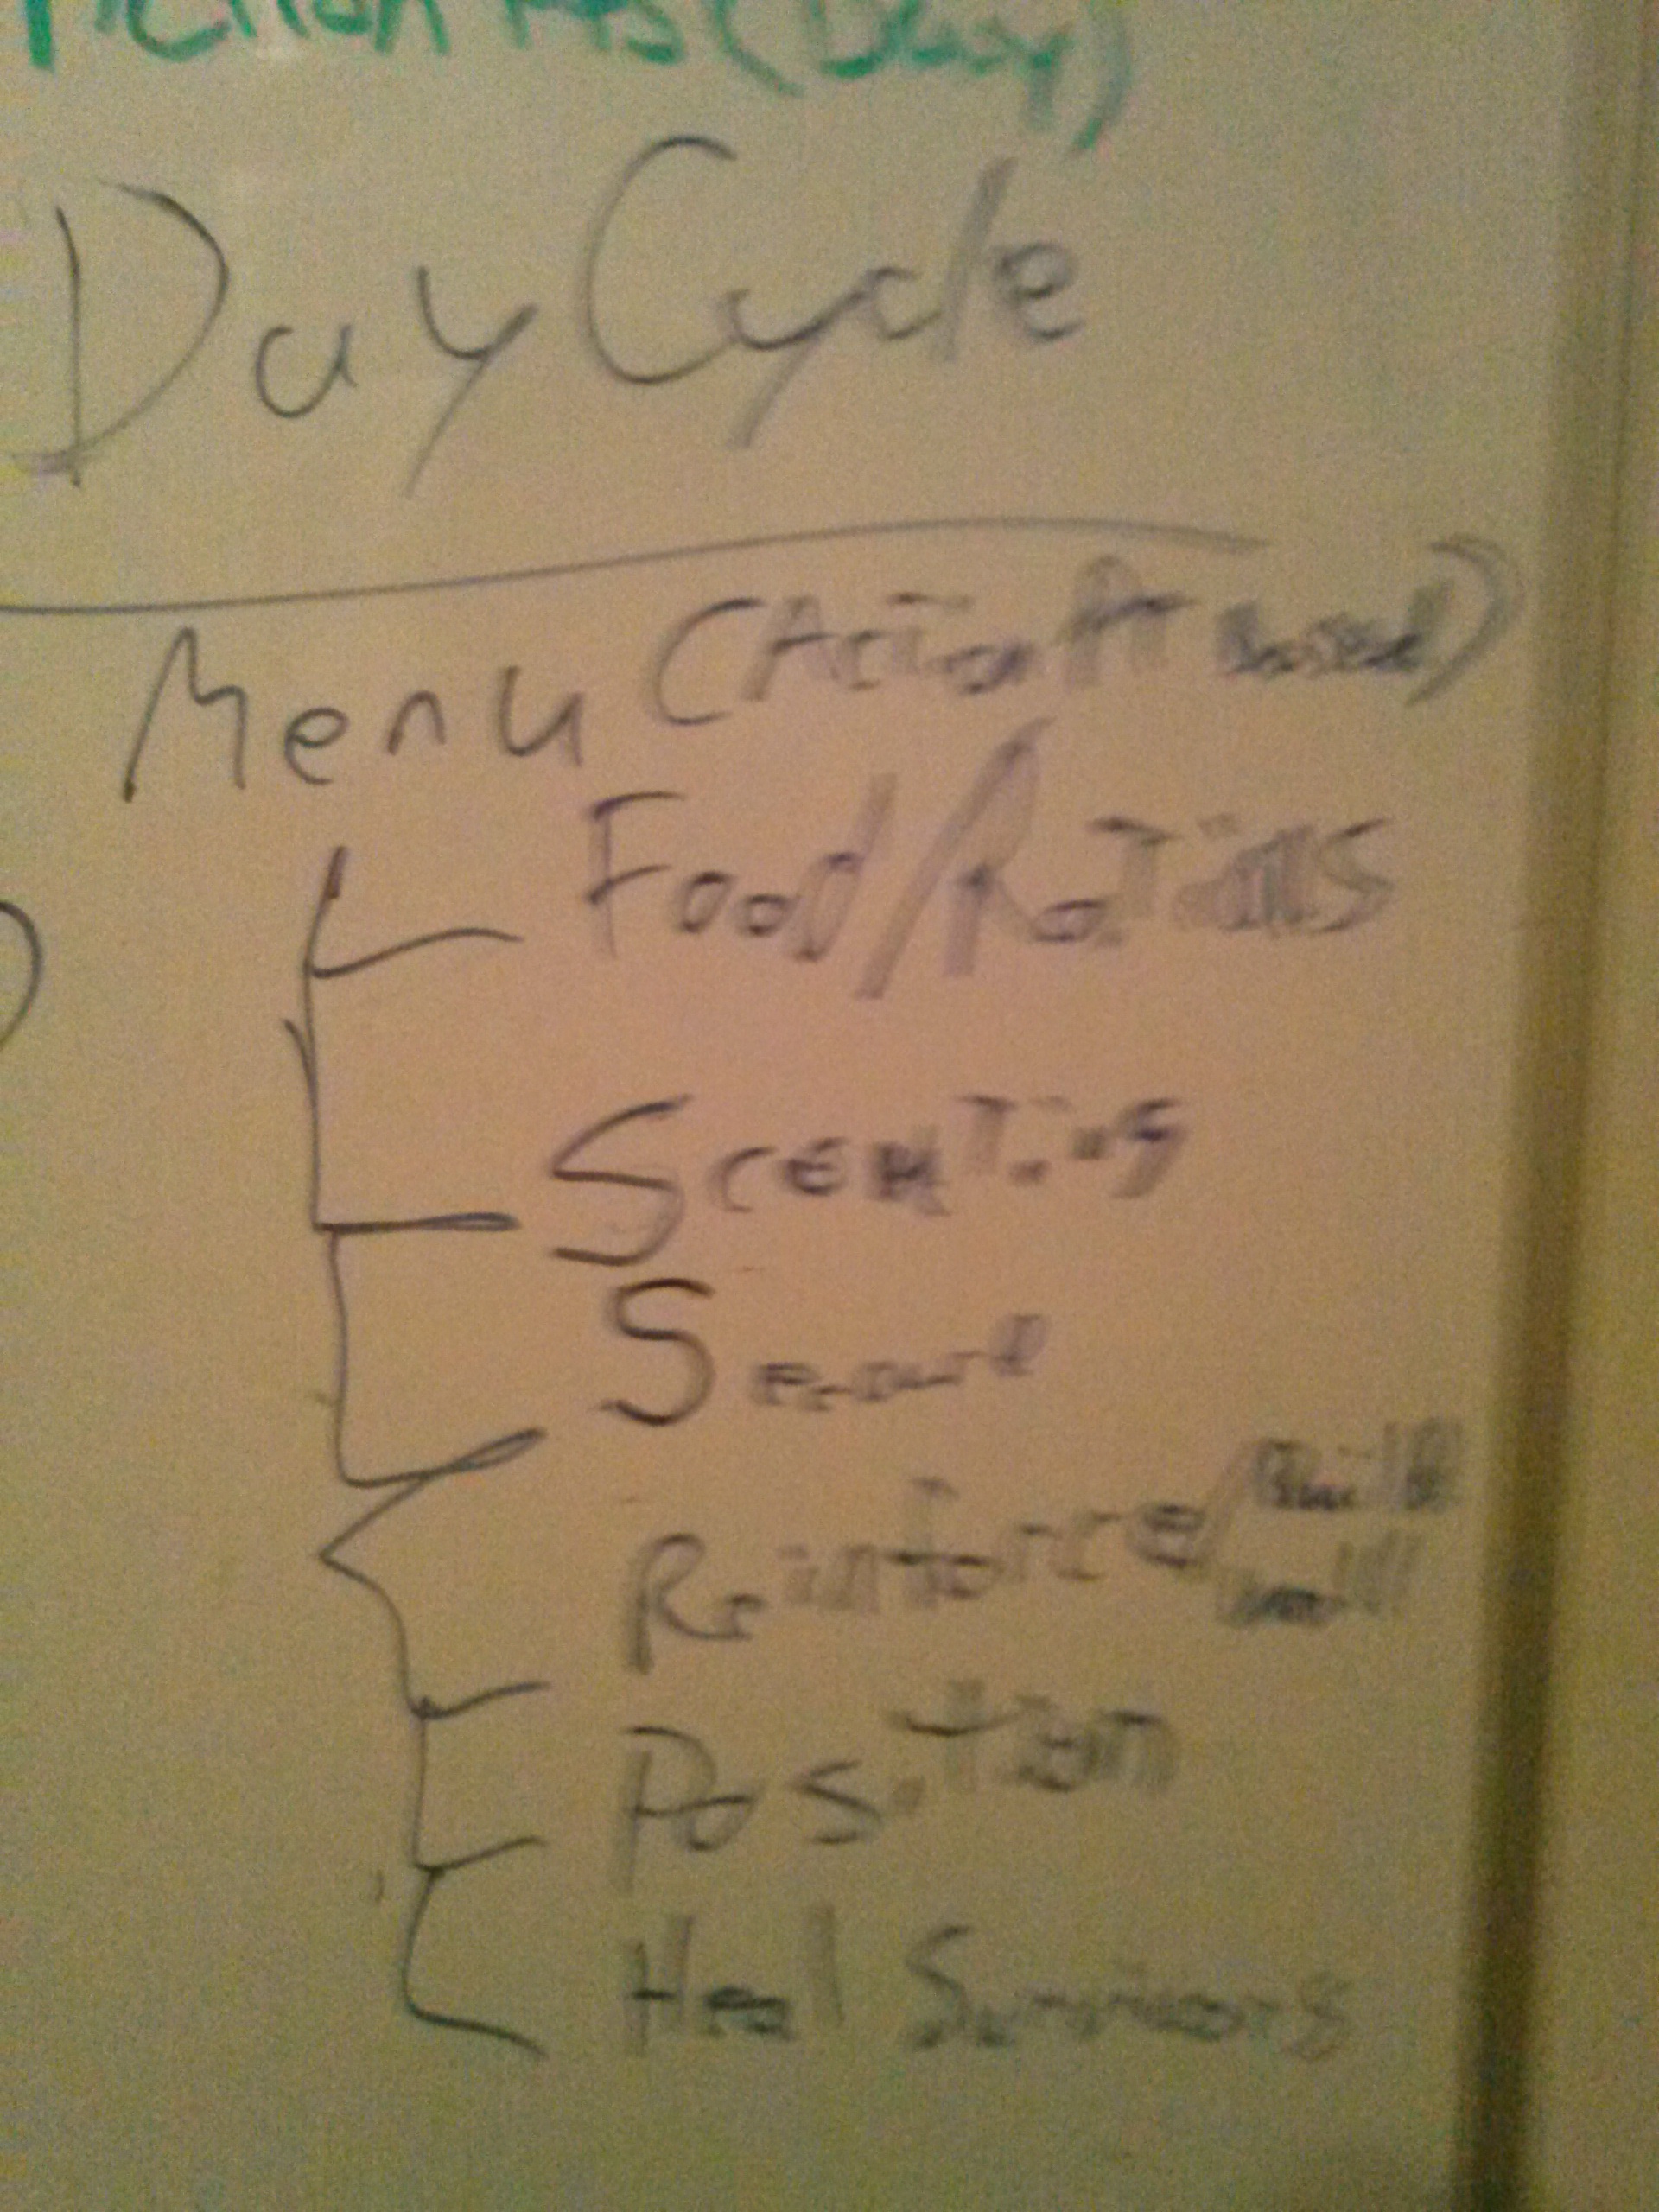 Action Pts (Day)
Day Cycle
Menu (Action Pt Based)
Food/Rations
Scouting
Secure
Reinforce/Build
wall
Position
Heal Survivors